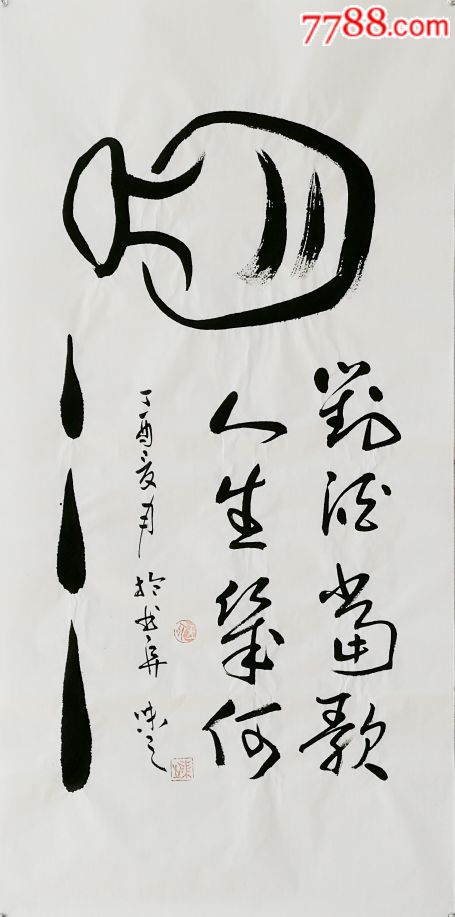 7788.com
酒
對酒當歌
人生幾何
丁酉夏月於書屋